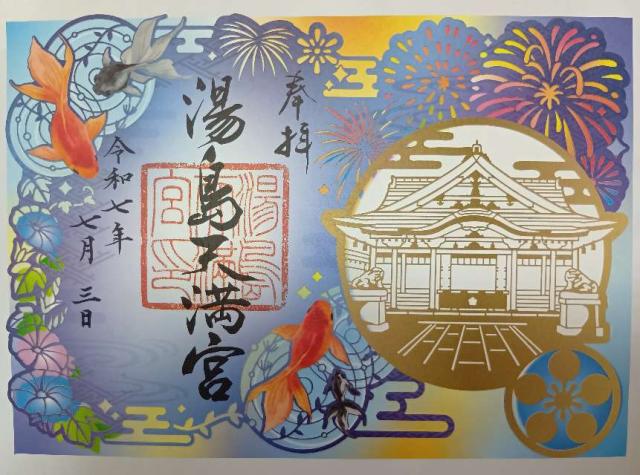 奉拝
湯島天満宮
令和七年
七月三日